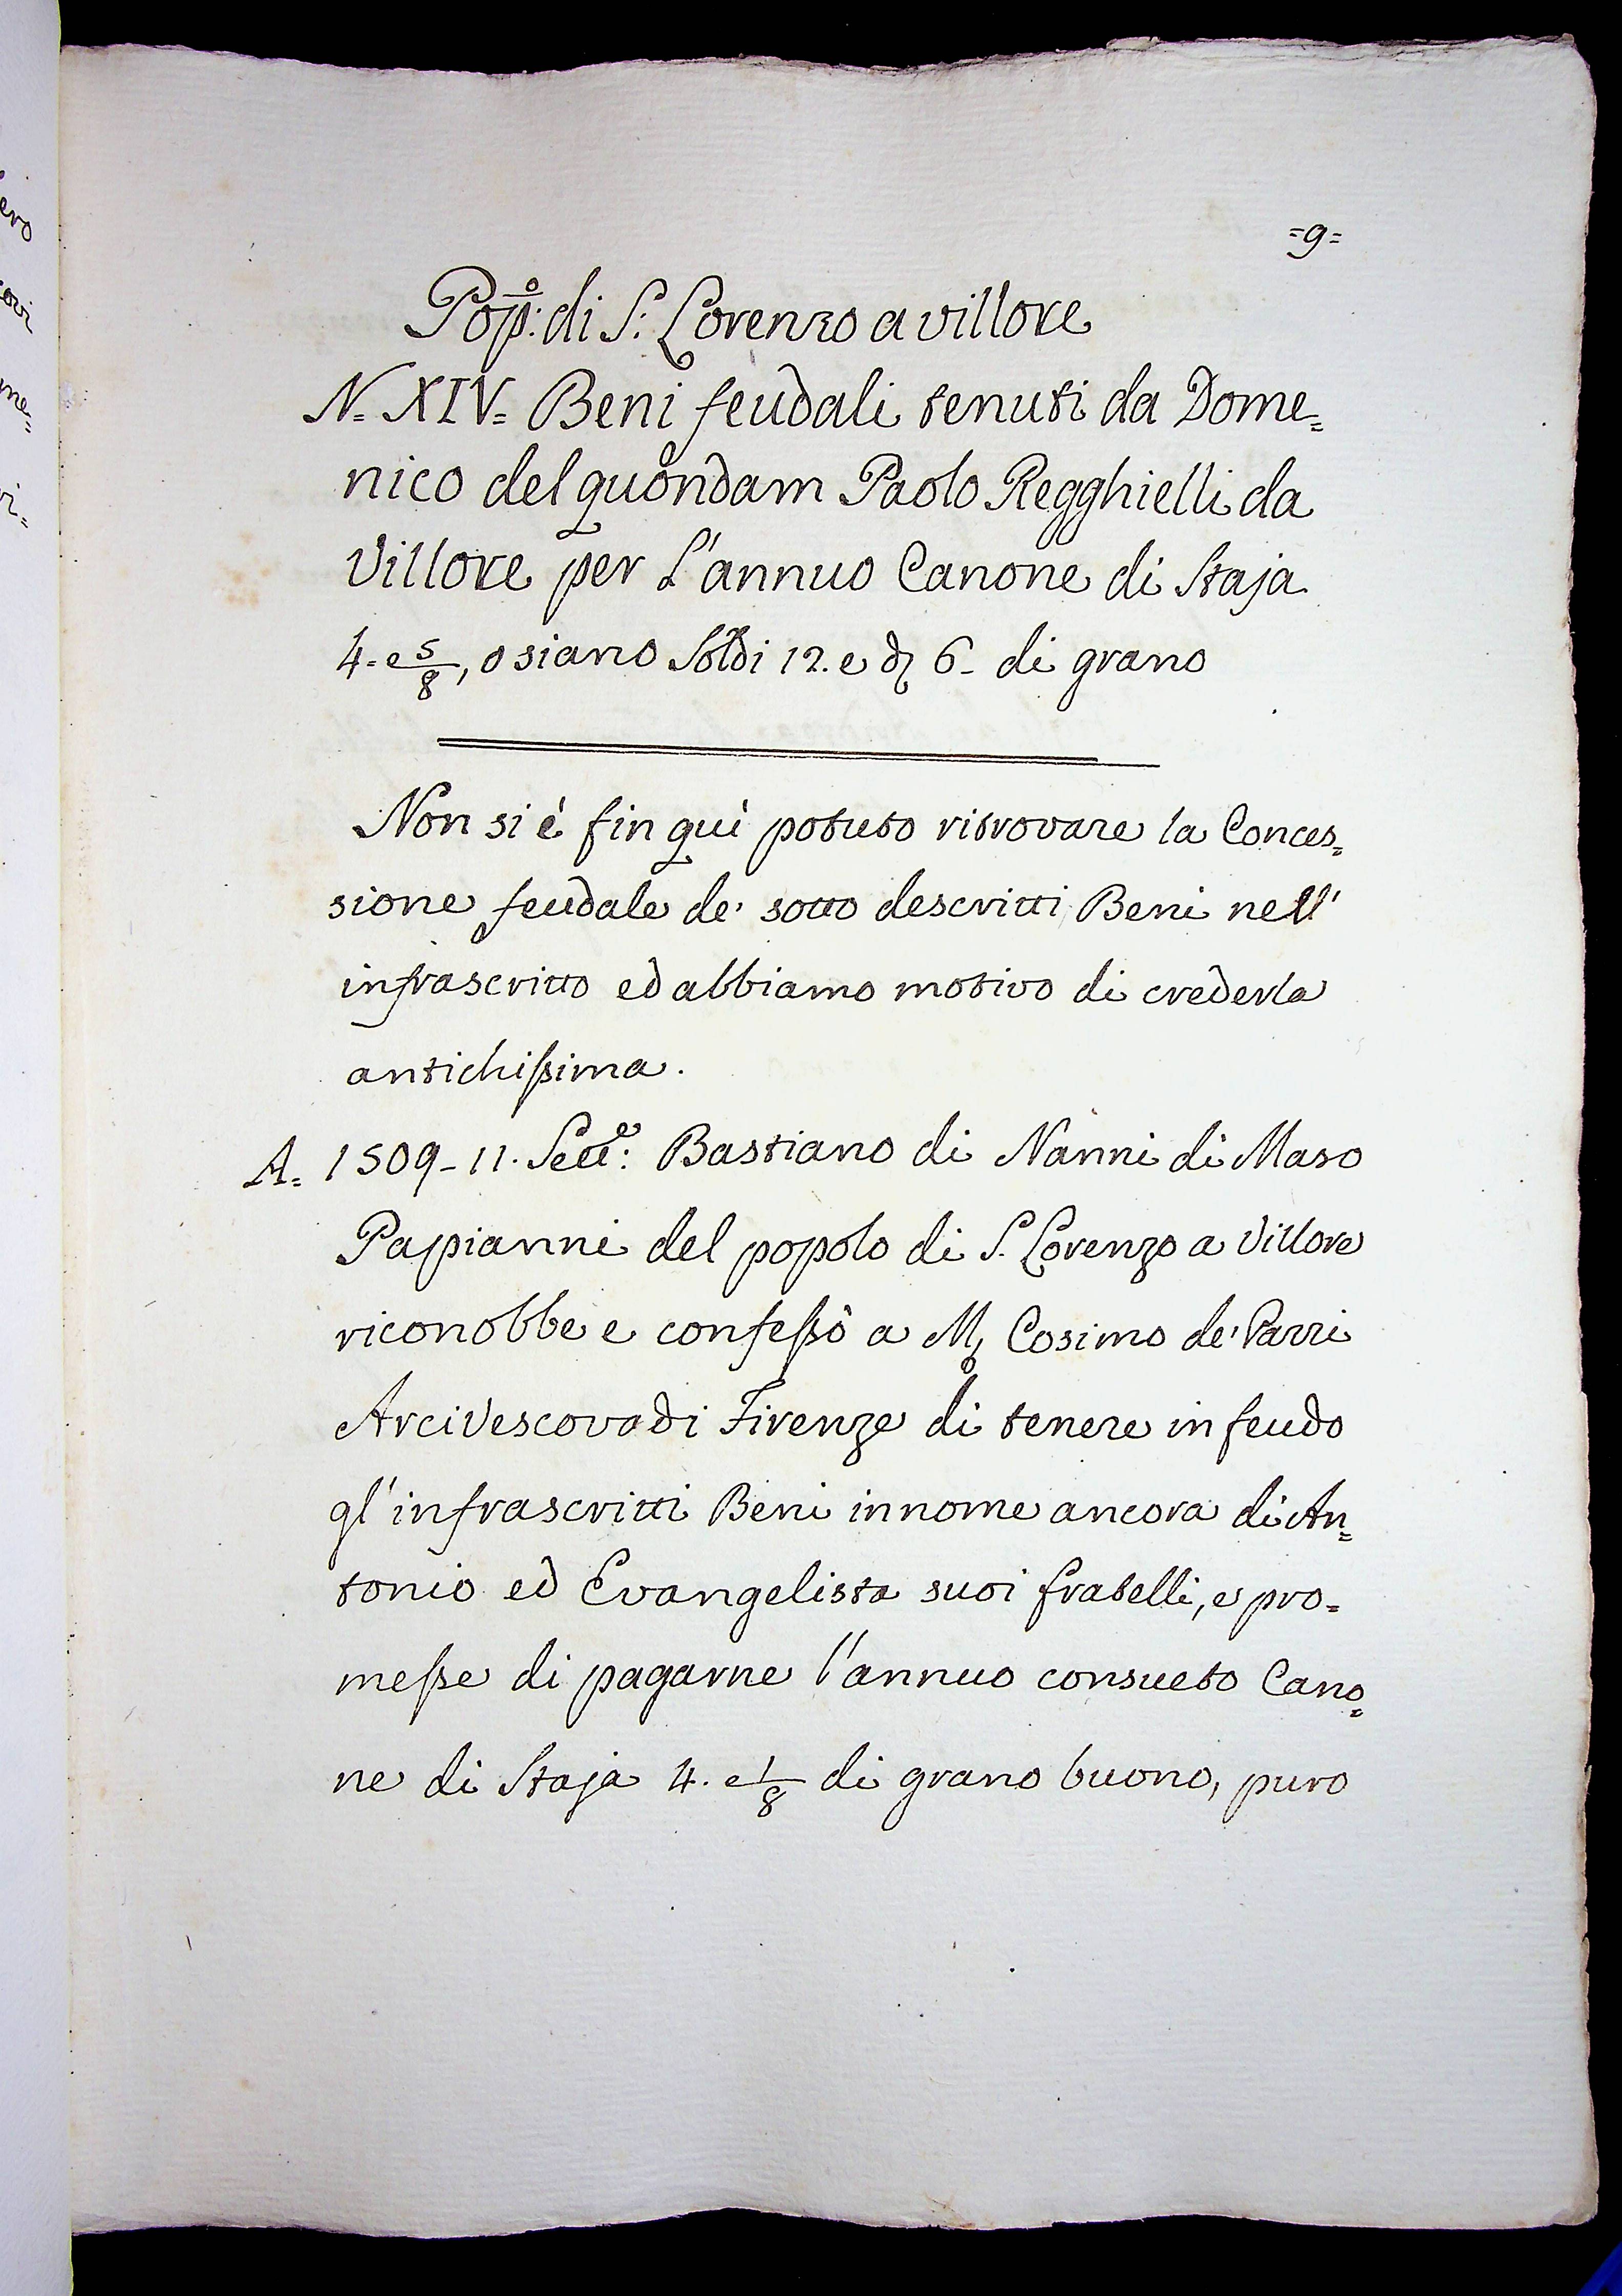 =9=
Pop.º di S. Lorenzo a villore
N. XIV= Beni feudali tenuti da Dome=
nico del quondam Paolo Regghielli da
Villore per L'annuo Canone di Staja
4. e 5/8, o siano Soldi 12. e d 6. di grano
Non si è fin quì potuto ritrovare la Conces=
sione feudale de' sotto descritti Beni nell'
infrascritto ed abbiamo motivo di crederla
antichissima.
A. 1509 - 11. Sett.e: Bastiano di Nanni di Maso
Papianni del popolo di S. Lorenzo a Villore
riconobbe e confessò a M, Cosimo de' Pazzi
Arcivescovo di Firenze di tenere in feudo
gl'infrascritti Beni in nome ancora di An=
tonio ed Evangelista suoi fratelli, e pro=
messe di pagarne l'annuo consueto Cano=
ne di Staja 4. e 1/8 di grano buono, puro